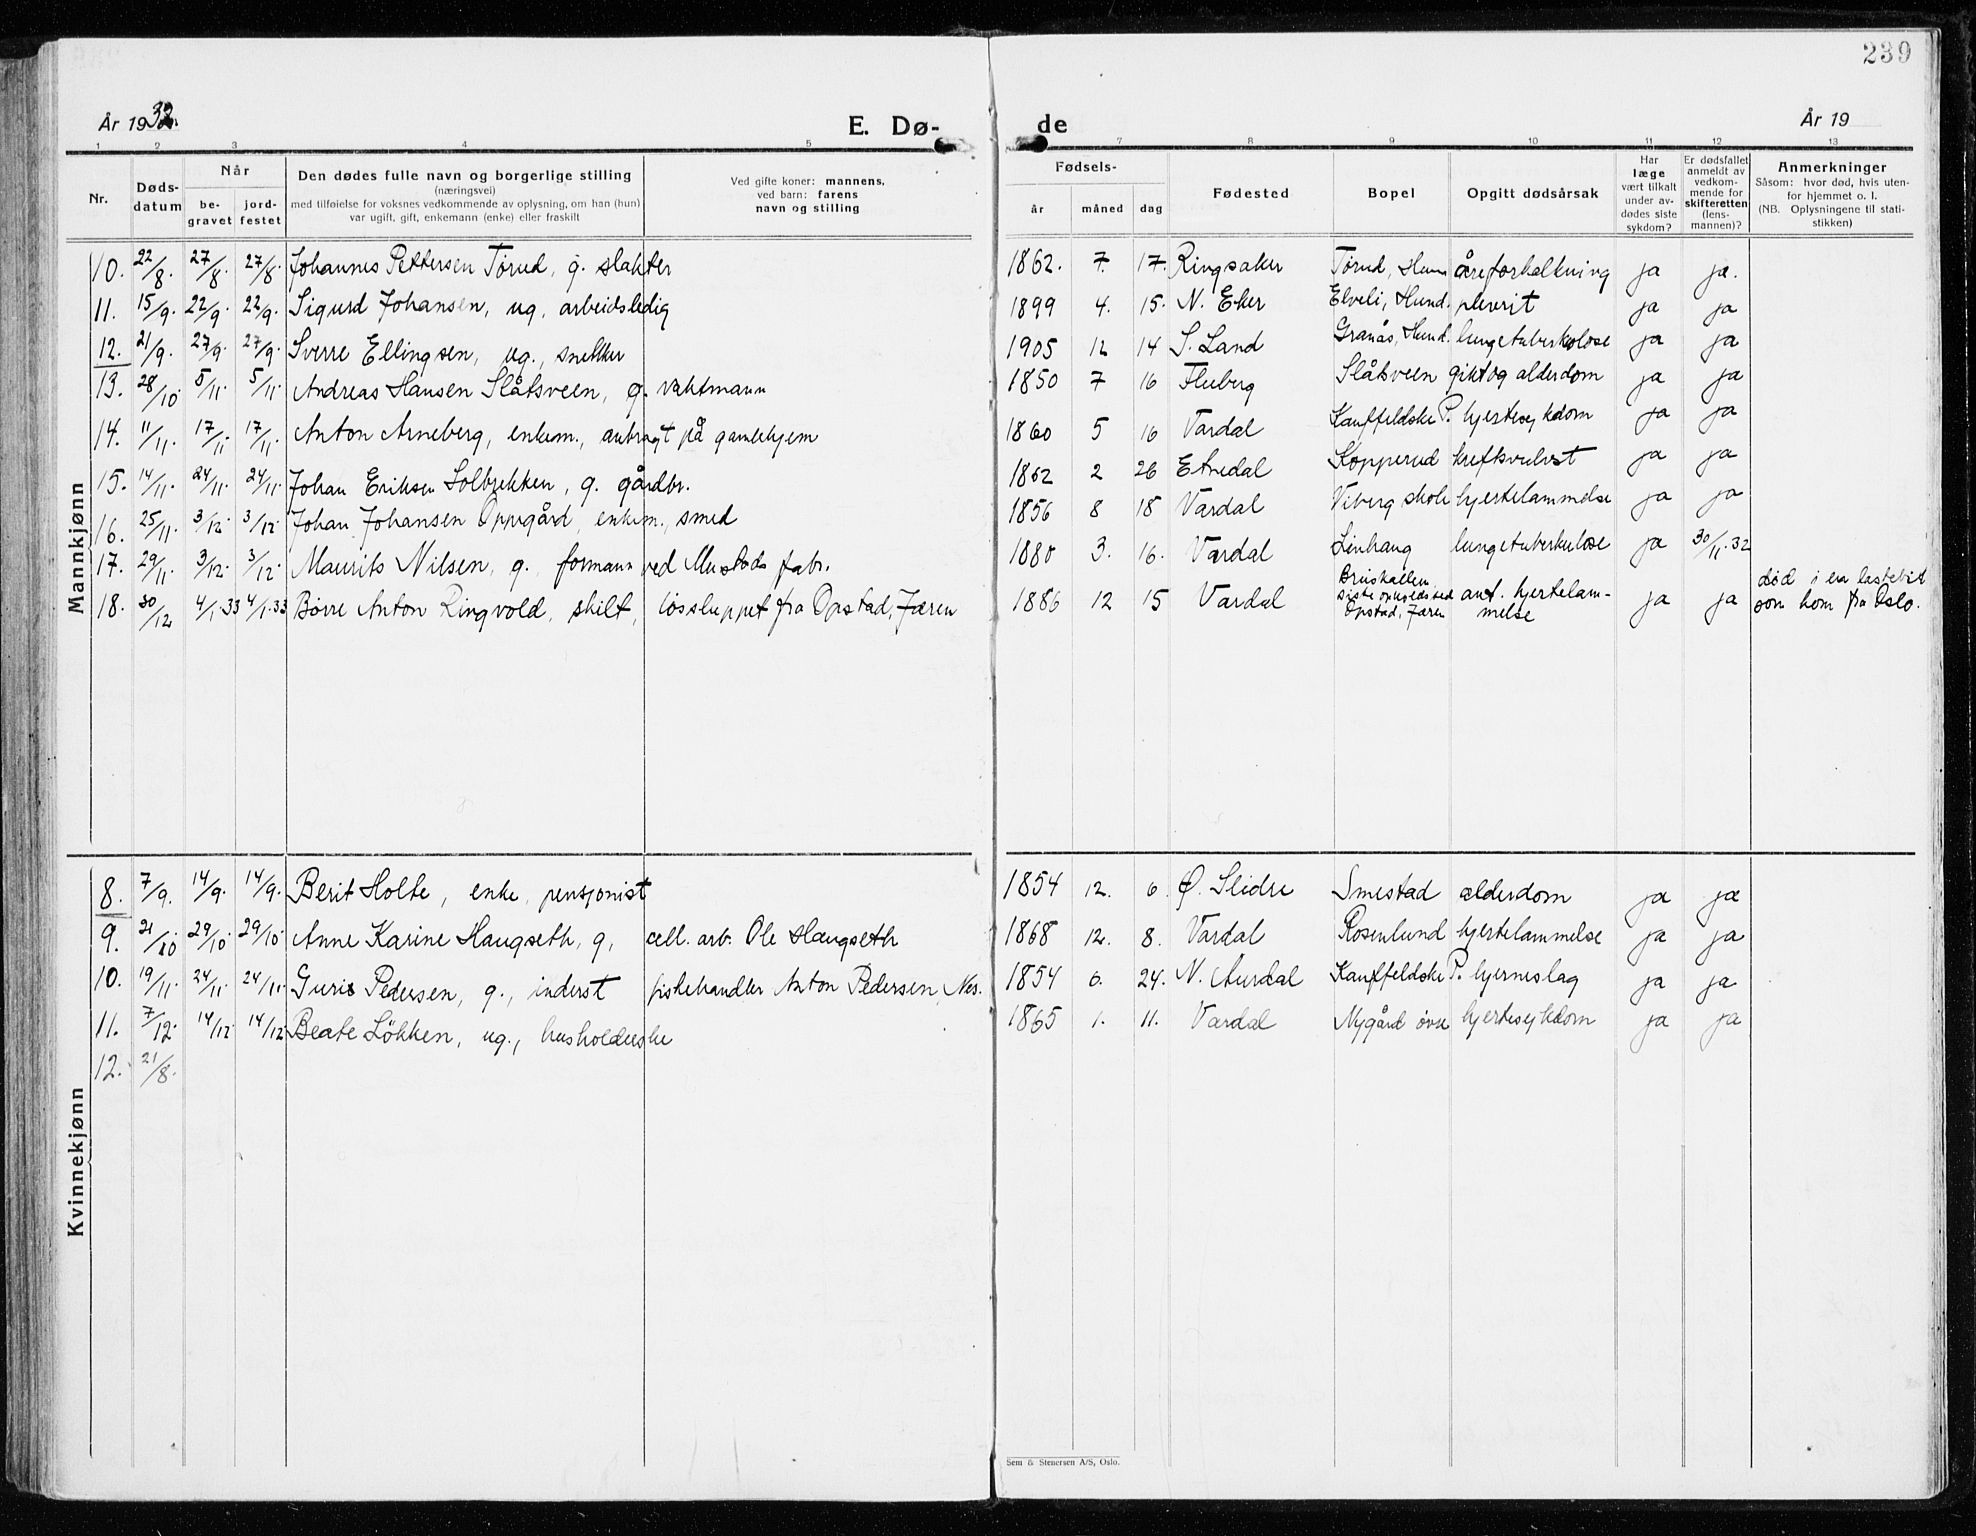 239
År 1932. E. Dø- de År 19
1 2 3 4 5 7 8 9 10 11 12 13
Nr. Døds-datum Når be-gravet jord-festet Den dødes fulle navn og borgerlige stilling (næringsvei) med tilføielse for voksnes vedkommende av oplysning, om han (hun) var ugift, gift, enkemann (enke) eller fraskilt Ved gifte koner: mannens, ved barn: farens navn og stilling Fødsels- år måned dag Fødested Bopel Opgitt dødsårsak Har læge vært tilkalt under av-dødes siste sykdom? Er dødsfallet anmeldt av vedkom-mende for skifteretten (lens-mannen)? Anmerkninger Såsom: hvor død, hvis uten-for hjemmet o. l. (NB. Oplysningene til stati-stikken)
Mannkjønn
10. 22/8. 27/8. 27/8. Johannes Pettersen Tørud, g. slakter 1862. 7. 17. Ringsaker Tørud, Hunn åreforkalkning ja ja.
11. 15/9. 22/9. 22/9. Sigurd Johansen, ug, arbeidsledig 1899 4. 15. N. Eker Elveli, Hund. plevrit ja ja
12. 21/9. 27/9. 27/9. Sverre Ellingsen, ug., snekker 1905 12 14 S. Land Granås, Hund. lungetuberkolose ja ja
13. 28/10 5/11 5/11 Andreas Hansen Slåtsveen, g. vaktmann 1850 7 16 Fluberg Slåtsveen gikt og alderdom ja ja
14. 11/11. 17/11 17/11. Anton Arneberg, enkem., anbragt på gamlehjem 1860 5 16 Vardal Kauffeldske P. hjertesykdom ja ja
15. 14/11. 24/11. 24/11 Johan Eriksen Solbrekken, g. gårdbr. 1862 2 26 Etnedal Kopperud kreftsvulst ja ja
16. 25/11. 3/12. 3/12. Johan Johansen Oppegård, enkem., smed 1856 8 18 Vardal Viberg skole hjertelammelse ja ja
17. 29/11. 3/12. 3/12. Maurits Nilsen, g. formann ved Mustads fabr. 1880 3. 16. Vardal Linhaug lungetuberkulose ja 30/11.32
18. 30/12 4/1.33 4/1.33 Børre Anton Ringvold, skilt, løssluppet fra Opstad, Jæren 1886 12 15 Vardal Bruskallen siste opholdssted Opstad, Jæren ant. hjertelam-melse ja ja død i en lastebil som kom fra Oslo.
Kvinnekjønn
8. 7/9. 14/9. 14/9. Berit Holte, enke, pensjonist 1854 12. 6. Ø. Slidre Smestad alderdom ja ja
9. 21/10 29/10 29/10 Anne Karine Haugseth, g, cell. arb. Ole Haugseth 1868 12. 8. Vardal Rosenlund hjertelammelse ja ja
10. 19/11. 24/11. 24/11. Guri Pedersen, g., inderst fiskehandler Anton Pedersen, Nes. 1854 6. 24. N. Aurdal Kauffeldske P. hjerneslag ja ja
11. 7/12. 14/12. 14/12 Beate Løkken, ug., husholderske 1865 1. 11. Vardal Nygård øvre hjertesykdom ja ja
12. 21/8.
Sem & Stenersen A/S, Oslo.